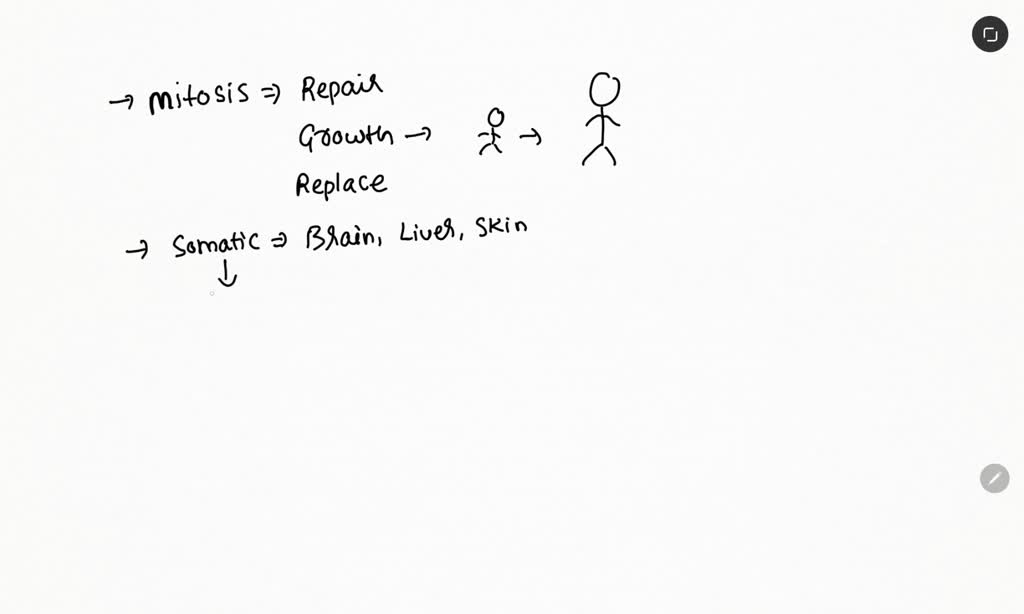 → mitosis ⇒ Repair
Growth → →
Replace
→ Somatic ⇒ Brain, Liver, Skin
↓